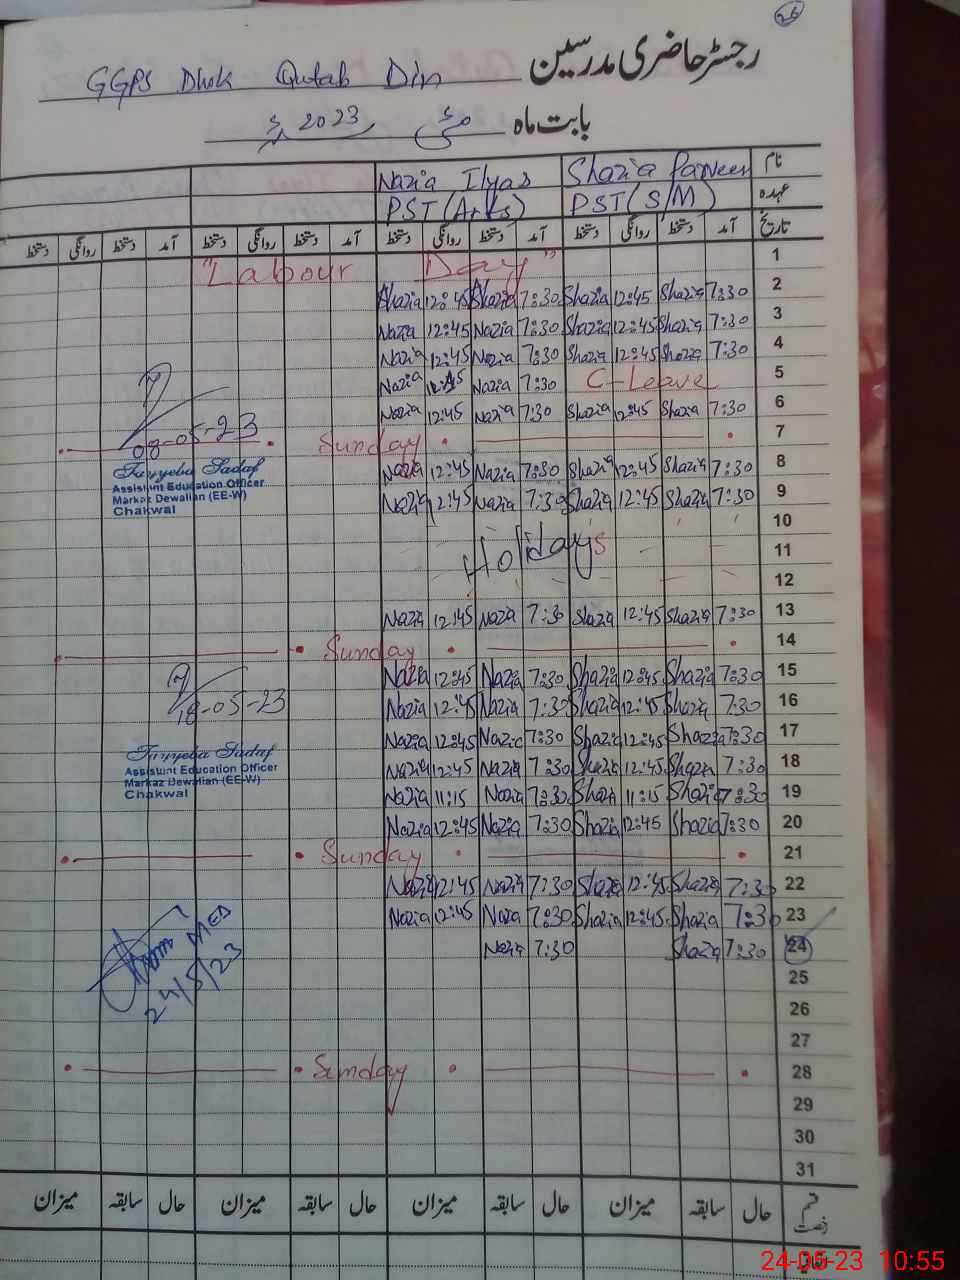 26
GGPS Dhok Qutab Din رجسٹر حاضری مدرسین
بابت ماہ مئی 2023ء
Nazia Ilyas Shazia Parveen نام
PST (Arts) PST (S/M) عہدہ
دستخط روانگی دستخط آمد دستخط روانگی دستخط آمد دستخط روانگی دستخط آمد دستخط روانگی دستخط آمد تاریخ
"Labour Day" 1
Shazia 12:45 Shazia 7:30 Shazia 12:45 Shazia 7:30 2
Nazia 12:45 Nazia 7:30 Shazia 12:45 Shazia 7:30 3
Nazia 12:45 Nazia 7:30 Shazia 12:45 Shazia 7:30 4
Nazia 12:45 Nazia 7:30 C-Leave 5
Nazia 12:45 Nazia 7:30 Shazia 12:45 Shazia 7:30 6
08-05-23
Sunday 7
Tayyeba Sadaf
Assistant Education Officer
Markaz Dewalian (EE-W)
Chakwal
Nazia 12:45 Nazia 7:30 Shazia 12:45 Shazia 7:30 8
Nazia 12:45 Nazia 7:30 Shazia 12:45 Shazia 7:30 9
10
Holidays 11
12
Nazia 12:45 Nazia 7:30 Shazia 12:45 Shazia 7:30 13
Sunday 14
Nazia 12:45 Nazia 7:30 Shazia 12:45 Shazia 7:30 15
18-05-23
Nazia 12:45 Nazia 7:30 Shazia 12:45 Shazia 7:30 16
Nazia 12:45 Nazia 7:30 Shazia 12:45 Shazia 7:30 17
Tayyeba Sadaf
Assistant Education Officer
Markaz Dewalian (EE-W)
Chakwal
Nazia 12:45 Nazia 7:30 Shazia 12:45 Shazia 7:30 18
Nazia 11:15 Nazia 7:30 Shazia 11:15 Shazia 7:30 19
Nazia 12:45 Nazia 7:30 Shazia 12:45 Shazia 7:30 20
Sunday 21
Nazia 12:45 Nazia 7:30 Shazia 12:45 Shazia 7:30 22
Nazia 12:45 Nazia 7:30 Shazia 12:45 Shazia 7:30 23
Nazia 7:30 Shazia 7:30 24
MEA
24/5/23
25
26
27
Sunday 28
29
30
31
میزان سابقہ حال میزان سابقہ حال میزان سابقہ حال میزان سابقہ حال قسم رخصت
24-05-23 10:55